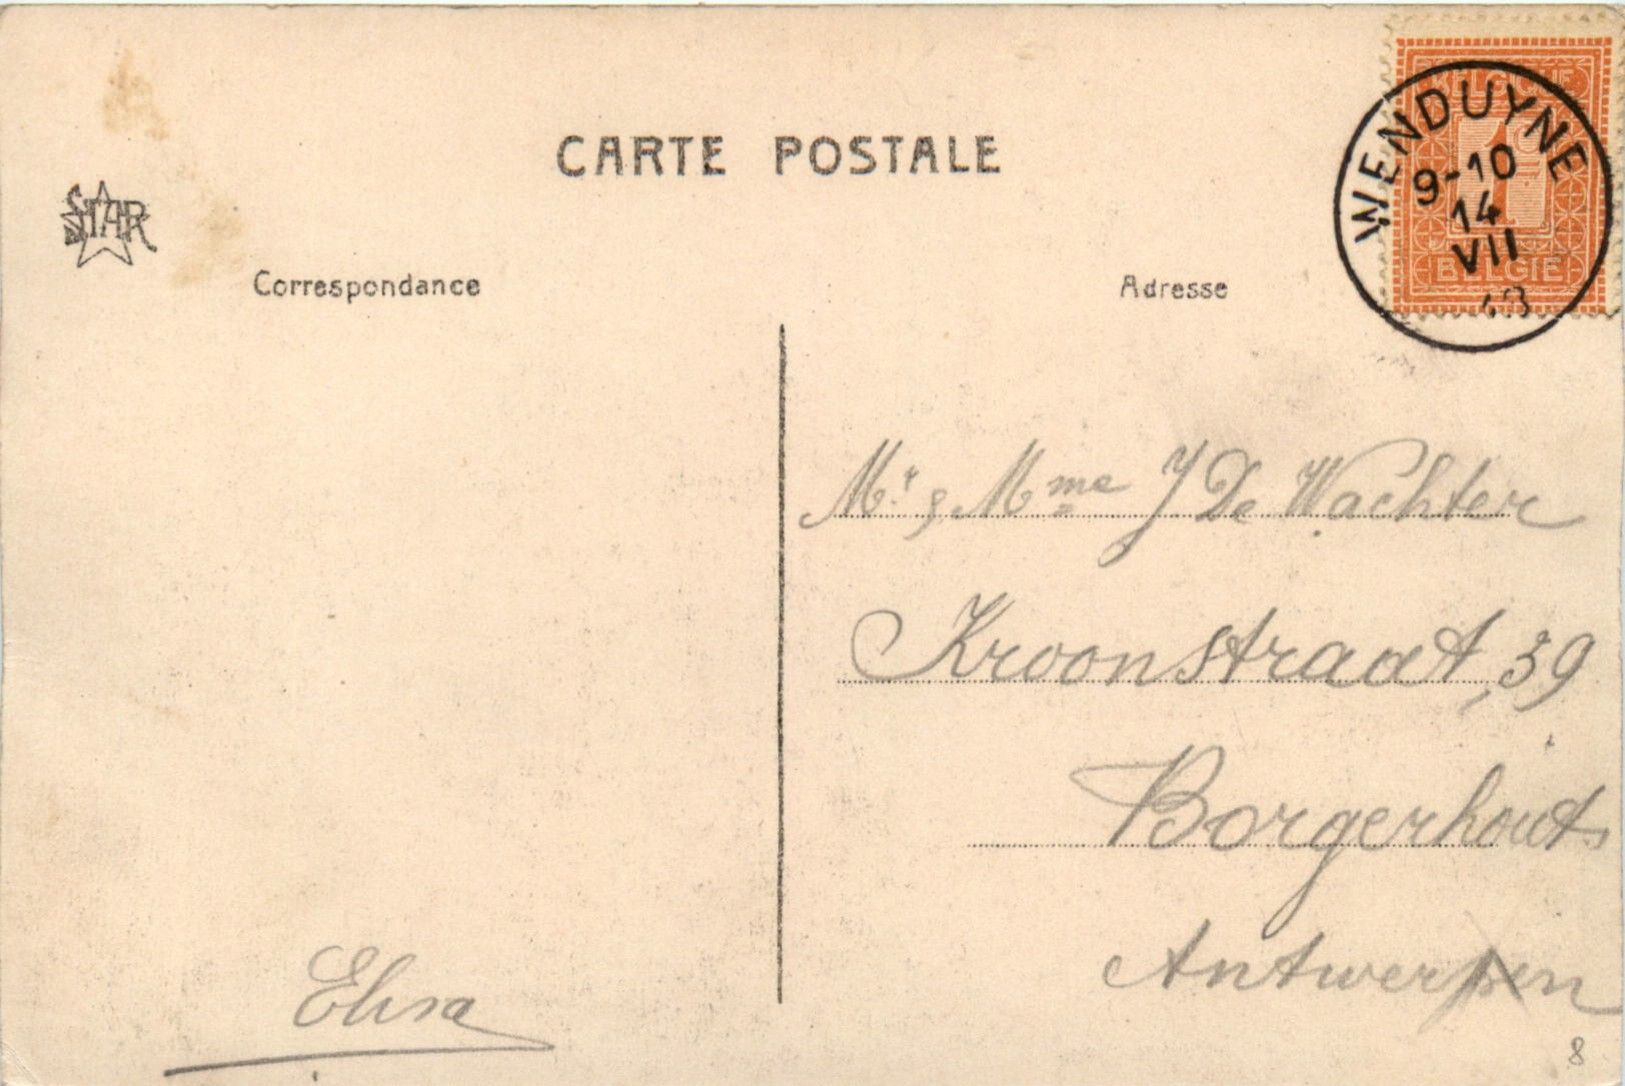 CARTE POSTALE
STAR
Correspondance
Adresse
BELGIQUE
1
BELGIË
WENDUYNE
9-10
14
VII
13
Mr. & Mme J De Wachter
Kroonstraat, 39
Borgerhout
Antwerpen
Elisa
8